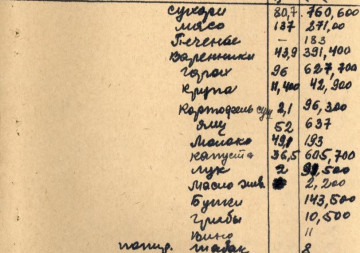 сухари 80,7. 760,600
мясо 137 271,00
Печенье - 183
Вареники 43,9 391,400
горох 96 627,700
крупа 11,400 42,900
картофель суш 2,1 96,300
яиц 52 637
Молоко 49,8 193
капуста 36,5 605,700
лук 2 98,500
масло жив. 2,200
Булки 143,500
грибы 10,500
Вино 11
папир. табак 8